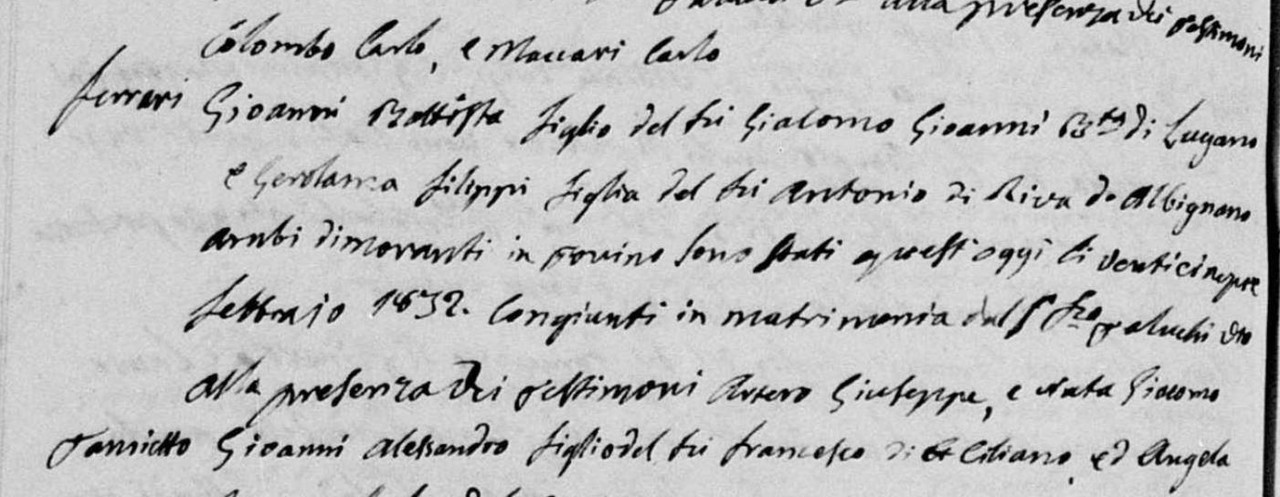 alla presenza dei testimoni
Colombo Carlo, e Maccari Carlo
Ferrari Gioanni Battista figlio del fu Giacomo Gioanni Bta di Lugano
e Gerolama filippi figlia del fu Antonio di Riva de Albignano
ambi dimoranti in torino sono stati quest'oggi li venticinque
febbraio 1832. Congiunti in matrimonio dal
alla presenza dei testimoni Artero Giuseppe, e Nata Giacomo
Gioanni Alessandro figlio del fu francesco di Ciliano, ed Angela